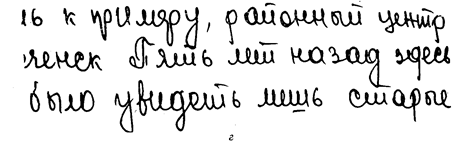 ть к примеру, районный центр
ченск Пять лет назад здесь
было увидеть лишь старые
г